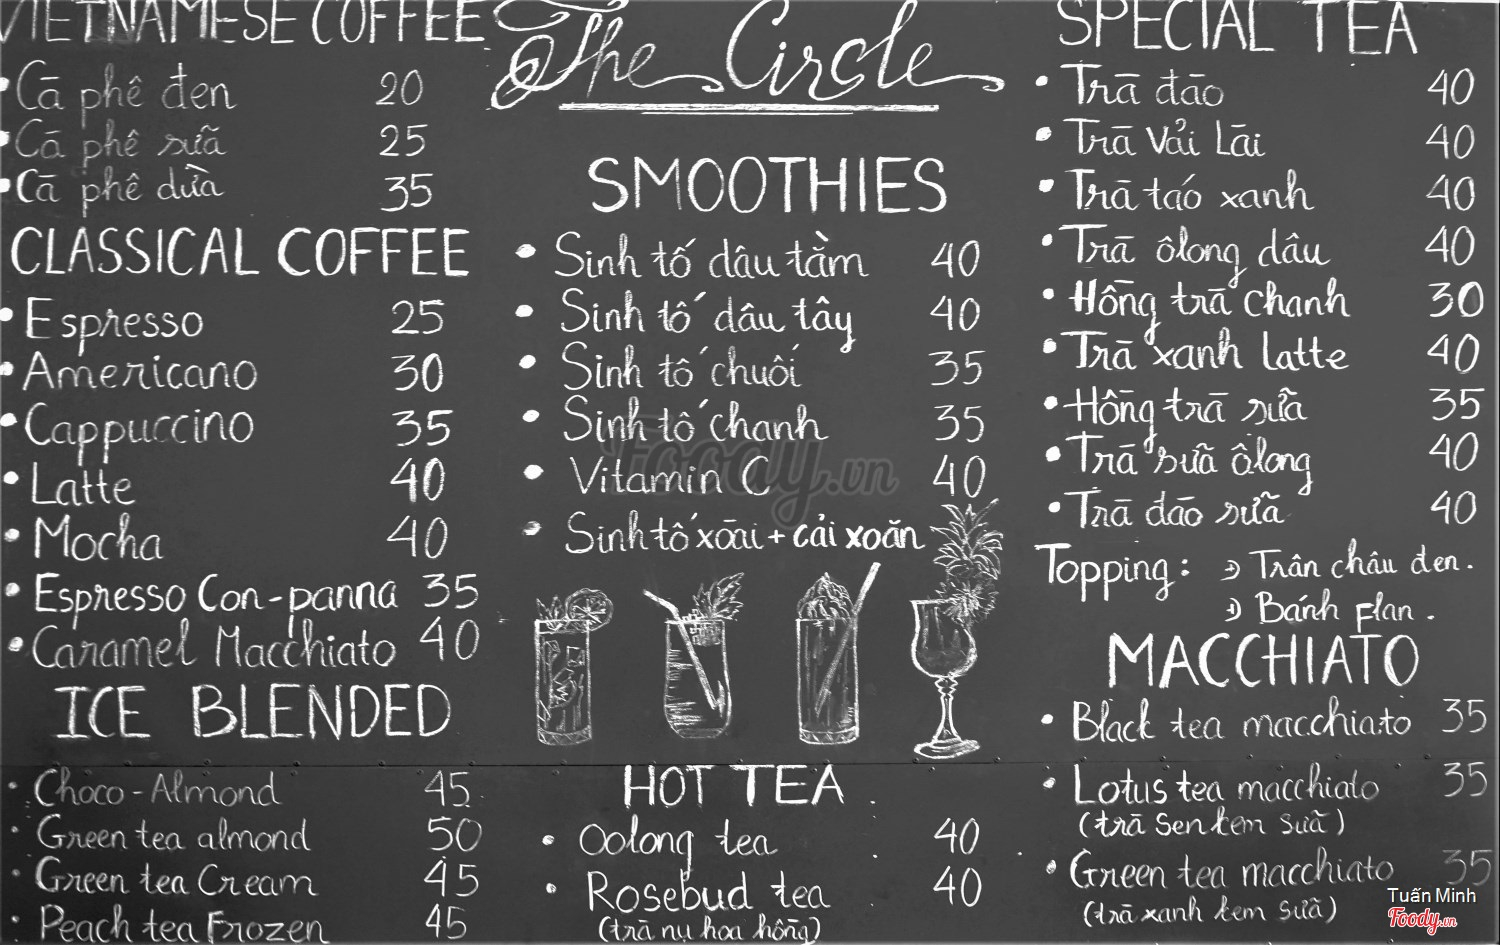 VIETNAMESE COFFEE
Cà phê đen 20
Cà phê sữa 25
Cà phê dừa 35
CLASSICAL COFFEE
Espresso 25
Americano 30
Cappuccino 35
Latte 40
Mocha 40
Espresso Con-panna 35
Caramel Macchiato 40
ICE BLENDED
Choco-Almond 45
Green tea almond 50
Green tea Cream 45
Peach tea Frozen 45
The Circle
SMOOTHIES
Sinh tố dâu tằm 40
Sinh tố dâu tây 40
Sinh tố chuối 35
Sinh tố chanh 35
Vitamin C 40
Sinh tố xoài + cải xoăn
HOT TEA
Oolong tea 40
Rosebud tea 40
(trà nụ hoa hồng)
SPECIAL TEA
Trà đào 40
Trà Vải Lài 40
Trà táo xanh 40
Trà ôlong dâu 40
Hồng trà chanh 30
Trà xanh latte 40
Hồng trà sữa 35
Trà sữa ôlong 40
Trà đào sữa 40
Topping: Trân châu đen.
Bánh Flan.
MACCHIATO
Black tea macchiato 35
Lotus tea macchiato 35
(trà Sen kem sữa)
Green tea macchiato 35
(trà xanh kem sữa)
Foody.vn
Tuấn Minh
Foody.vn